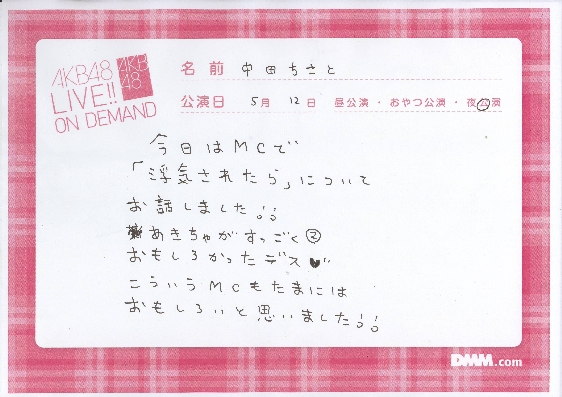 AKB48
LIVE!!
ON DEMAND
AKB
48
名前 中田ちさと
公演日 5月 12日 昼公演・おやつ公演・夜公演
今日はMCで
「浮気されたら」について
お話しました!!
あきちゃがすっごく②
おもしろかったデス♥
こういうMCもたまには
おもしろいと思いました!!
DMM.com